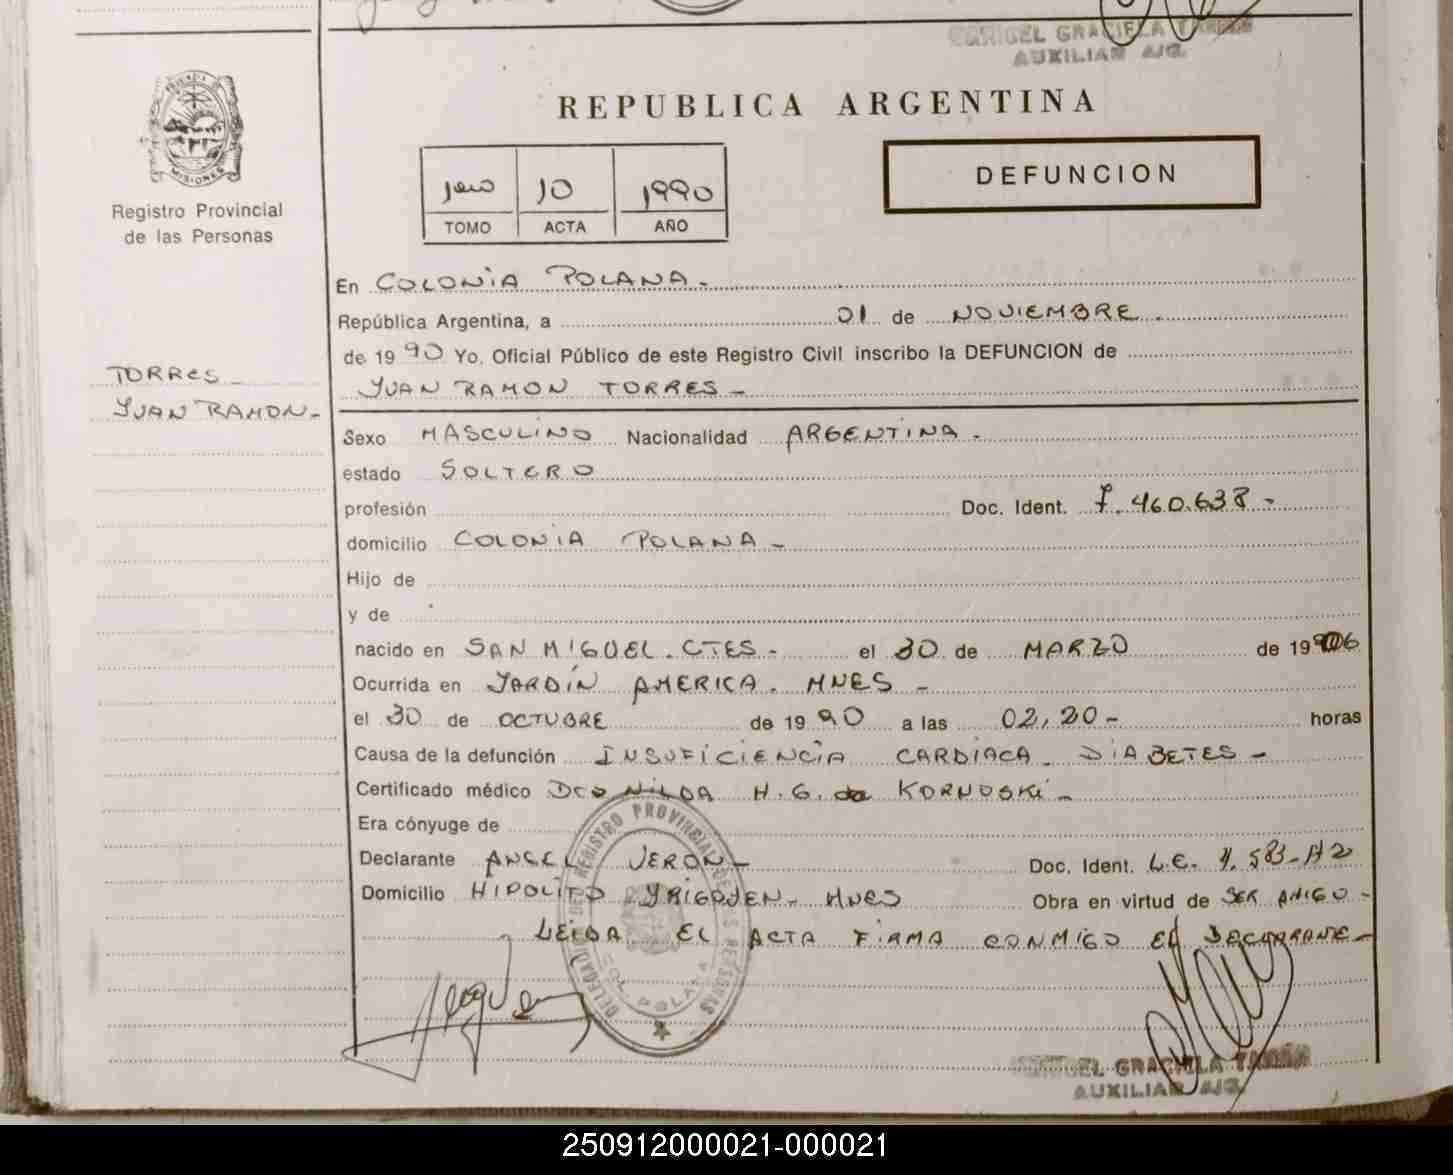 GRACIELA
AUXILIAR A/C.
MISIONES
Registro Provincial
de las Personas
REPUBLICA ARGENTINA
DEFUNCION
10 1990
TOMO ACTA AÑO
En COLONIA POLANA.
República Argentina, a 01 de NOVIEMBRE.
de 1990 Yo, Oficial Público de este Registro Civil inscribo la DEFUNCION de
JUAN RAMON TORRES-
TORRES-
JUAN RAMON-
Sexo MASCULINO Nacionalidad ARGENTINA.
estado SOLTERO
profesión Doc. Ident. 7.460.638-
domicilio COLONIA POLANA-
Hijo de
y de
nacido en SAN MIGUEL. CTES- el 30 de MARZO de 19
Ocurrida en JARDIN AMERICA. MNES-
el 30 de OCTUBRE de 1990 a las 02,20- horas
Causa de la defunción INSUFICIENCIA CARDIACA. DIABETES-
Certificado médico NILDA H.G. de KORNOSKI-
Era cónyuge de
Declarante ANGEL VERON- Doc. Ident. L.E.
Domicilio HIPOLITO YRIGOYEN- MNES Obra en virtud de SER AMIGO-
LEIDA EL ACTA FIRMA CONMIGO EL DECLARANTE-
REGISTRO PROVINCIAL DE LAS PERSONAS
COL. POLANA
GRACIELA
AUXILIAR A/C.
250912000021-000021